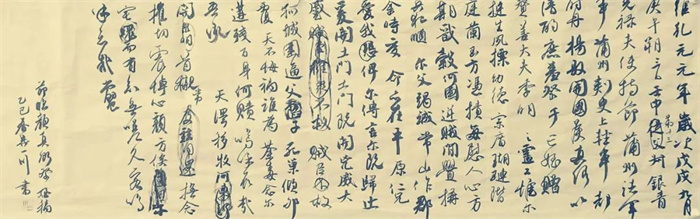 維乾元元年歲次戊戌九月
庚午朔三日壬申第十三叔銀青
光祿夫使持節蒲州諸軍
事蒲州刺史上輕車都
尉丹楊縣開國侯真卿以
清酌庶羞祭于亡姪贈
贊善大夫季明之靈曰惟爾
挺生夙標幼德宗廟瑚璉階
庭蘭玉方憑積每慰人心方
期戩穀何圖逆賊間釁稱
兵犯順爾父竭誠常山作郡
余時受命亦在平原仁兄
愛我俾爾傳言爾既歸止
爰開土門土門既開凶威大
蹙賊臣擁眾不救賊臣不救
孤城圍逼父陷子死巢傾卵
覆天不悔禍誰為荼毒念爾
遘殘百身何贖嗚呼哀哉
吾承
天澤移牧河關
首櫬及茲同還撫念
摧切震悼心顏方俟
宅魂而有知無嗟久客嗚
呼哀哉尚饗
節臨顏真卿祭姪稿
乙巳春一川書